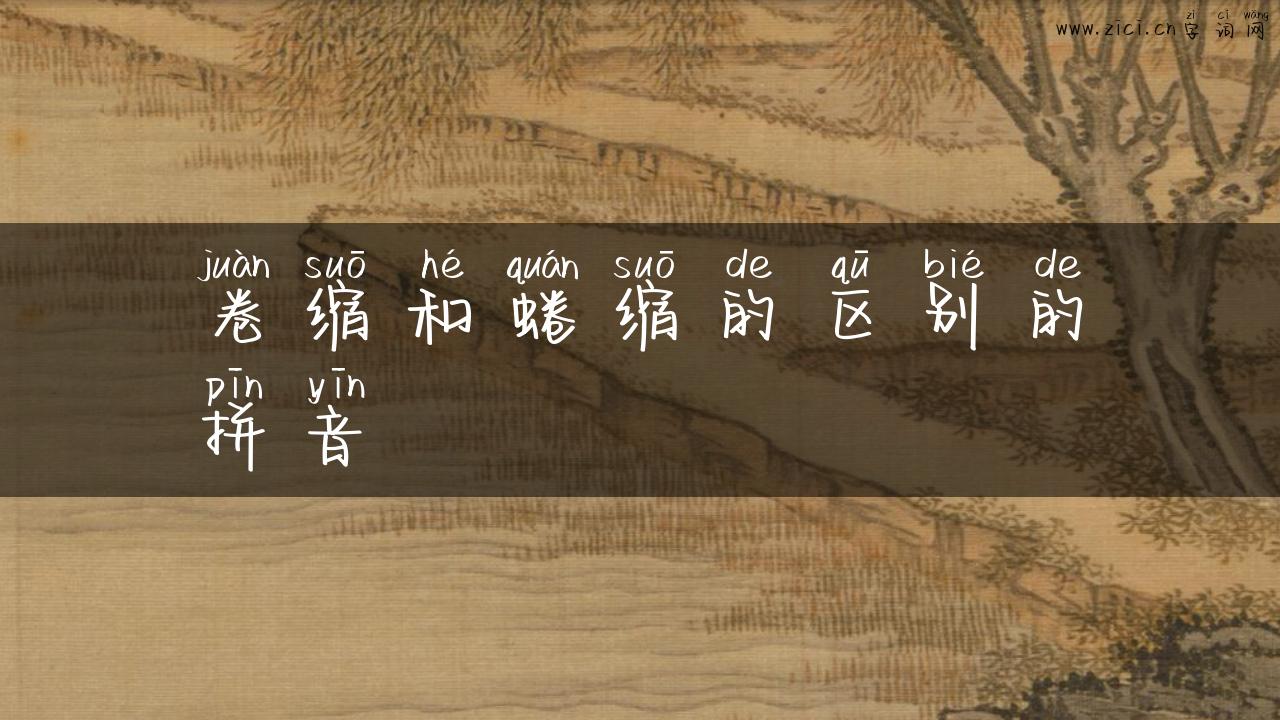 zì cí wǎng
www.zici.cn字词网
juàn suō hé quán suō de qū bié de
卷缩和蜷缩的区别的
pīn yīn
拼音